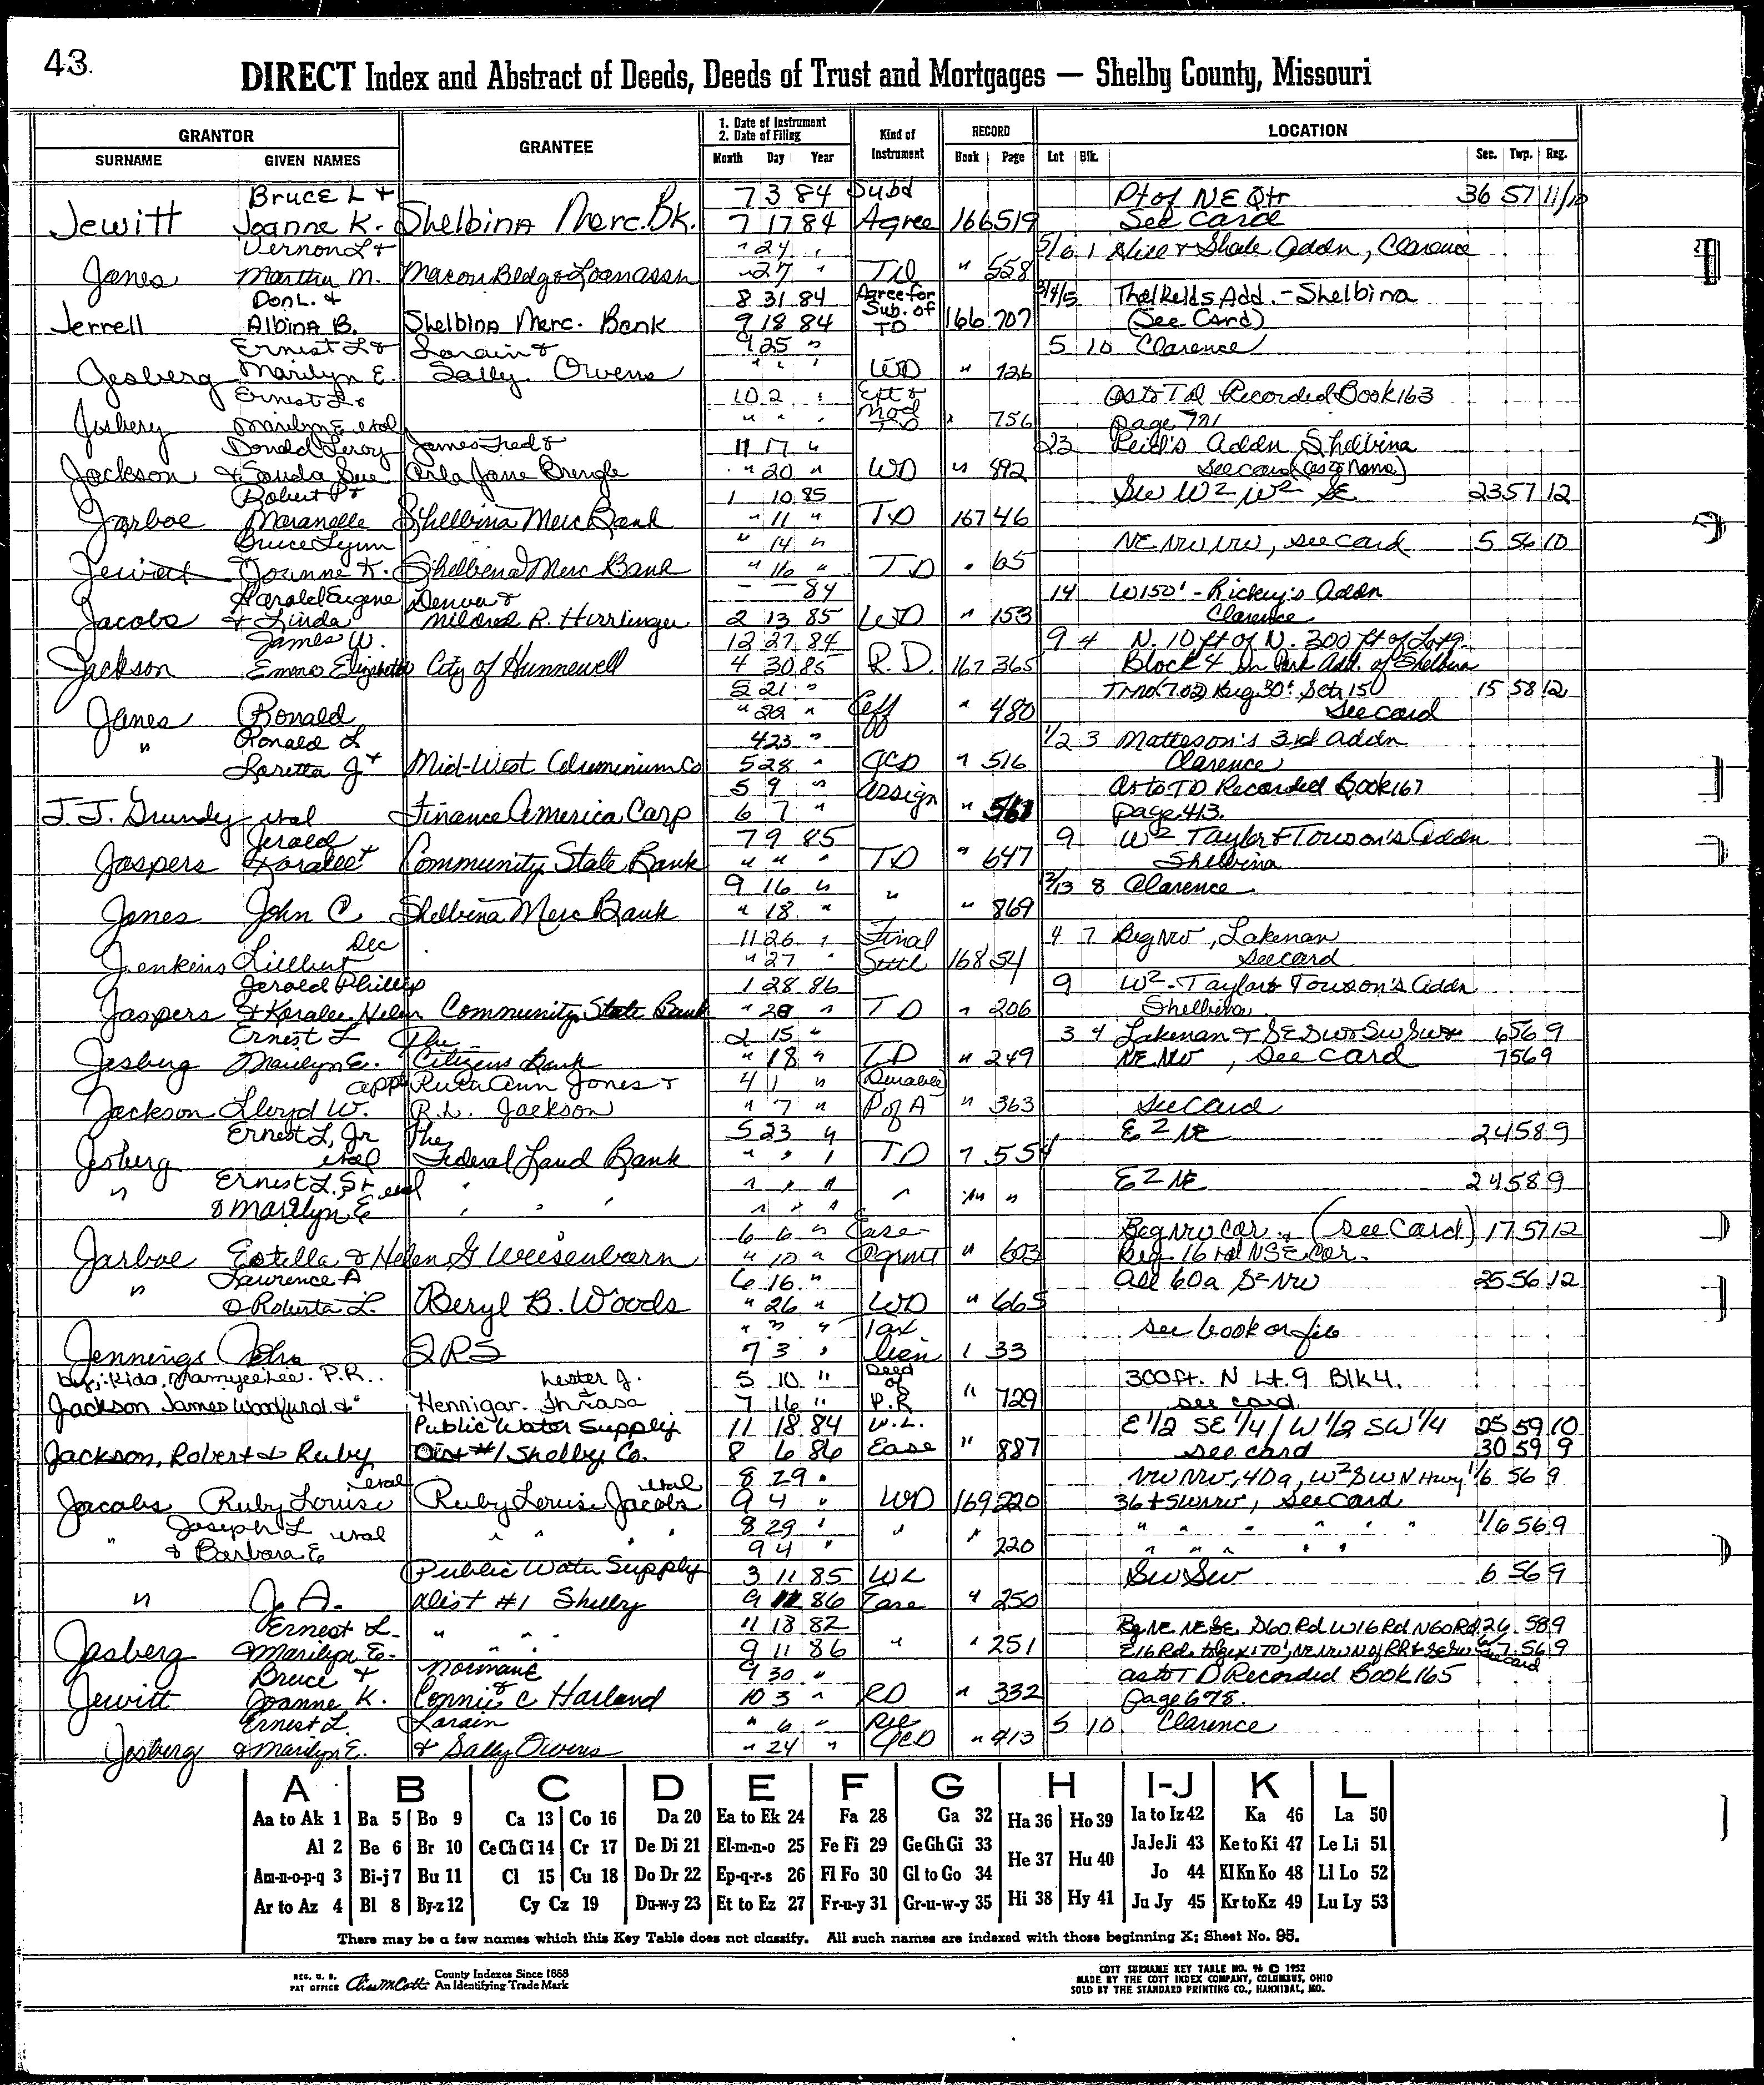 43.
DIRECT Index and Abstract of Deeds, Deeds of Trust and Mortgages — Shelby County, Missouri
GRANTOR GRANTEE 1. Date of Instrument 2. Date of Filing Kind of Instrument RECORD LOCATION
SURNAME GIVEN NAMES Month Day Year Book Page Lot Blk. Sec. Twp. Rng.
Bruce L + 7 3 84 Subd Pt of NE Qtr 36 57 11/10
Jewitt Joanne K. Shelbina Merc. Bk. 7 17 84 Agree 166 519 See Card
Vernon L + " 24 " 5/6 1 Addn, Clarence
Janes Martha M. Macon Bldg & Loan assn " 27 " TD " 558
Don L. + 8 31 84 Agree for Sub. of TD 3/4/5 Thelkelds Add. - Shelbina
Jerrell Albina B. Shelbina Merc. Bank 9 18 84 166 707 (See Card)
Ernest L & Lorain & 9 25 " 5 10 Clarence
Jesberg Marilyn E. Sally Owens " " " WD " 726
Ernest L & 10 2 " Ext & As to TD Recorded Book 163
Jesberg Marilyn E etal " " " Mod TD " 756 page 771
Donald Leroy James Fred & 11 17 " 23 Reid's Addn Shelbina
Jackson & Sonda Sue Arla Jane Brengle " 20 " WD " 892 See card (as to Name)
Robert P + 1 10 85 SW W2 W2 SE 23 57 12
Jarboe Maranelle Shelbina Merc Bank " 11 " TD 167 46
Bruce Lynn " 14 " NE NW NW, see card 5 56 10
Jewitt Joanne K. Shelbina Merc Bank " 16 " TD " 65
Harold Eugene Denver & — — 84 14 W150' - Rickey's Addn
Jacobs & Linda Mildred R. Hirrlinger 2 13 85 WD " 153 Clarence
James W. 12 27 84 9 4 N. 10 ft of N. 300 ft of Lot 9.
Jackson Emma Elizabeth City of Hunnewell 4 30 85 R.D. 167 365 Block 4 in Park Add. of Shelbina
5 21 " Tr no (702) Beg 30' S ctr 150 15 58 12
Janes Ronald " 22 " Aff " 480 See card
" Ronald L 4 23 " 1/2 3 Matteson's 3rd Addn
Loretta J + Mid-West Aluminium Co 5 28 " QCD " 516 Clarence
5 9 " Assign As to TD Recorded Book 167
J. J. Grundy etal Finance America Corp 6 7 " " 561 page 413.
Jerald 7 9 85 9 W2 Taylor & Towson's Addn
Jaspers Koralee + Community State Bank " " " TD " 647 Shelbina
9 16 " 2/13 8 Clarence
Janes John C. Shelbina Merc Bank " 18 " " " 869
Dec 11 26 " Final 4 7 Beg NW, Lakenan
Jenkins Lilburn " 27 " Settl 168 54 see card
Jerald Phillip 1 28 86 9 W2 - Taylor & Towson's Addn
Jaspers & Koralee Helen Community State Bank " 28 " TD " 206 Shelbina
Ernest L The 2 15 " 3 4 Lakenan & SE SW & SW SW & 6 56 9
Jesberg Marilyn E. Citizens Bank " 18 " TD " 249 NE NW, see card 7 56 9
app Ruth Ann Jones & 4 1 " Durable
Jackson Lloyd W. R.L. Jackson " 7 " P of A " 363 See Card
Ernest L, Jr The 5 23 " E2 NE 24 58 9
Jesberg etal Federal Land Bank " " " TD " 554
" Ernest L. Sr etal " " " " " " E2 NE 24 58 9
& Marilyn E " " " " " " " " "
6 6 " Ease- Beg NW Cor. (see Card) 17 57 12
Jarboe Estella & Helen G Weisenborn " 10 " Agmt " 603 Beg 16 rd N SE Cor.
" Lawrence A 6 16 " All 60a S2 NW 25 56 12
& Roberta L. Beryl B. Woods " 26 " WD " 665
" " " Tax see book or file
Jennings John IRS 7 3 " lien 1 33
by: Kida, Mamyee Lee. P.R. Lester J. & 5 10 " Deed of 300 ft. N Lt. 9 Blk 4.
Jackson James Woodfurd & Hennigar. Thrasa 7 16 " P.R " 729 see card
Public Water Supply 11 18 84 W.L. E 1/2 SE 1/4 / W 1/2 SW 1/4 25 59 10
Jackson, Robert & Ruby Dist #1 Shelby Co. 8 6 86 Ease " 887 see card 30 59 9
etal etal 8 29 " NW NW, 40a, W2 SW N Hwy 1/6 56 9
Jacobs Ruby Louise Ruby Louise Jacobs 9 4 " WD 169 220 36 + SW NW, see card
" Joseph L etal " " " 8 29 " " " " " " " " " 1/6 56 9
& Barbara E 9 4 " 220 " " " " "
Public Water Supply 3 11 85 WL SW SW 6 56 9
" J. A. Dist #1 Shelby 9 11 86 Ease " 250
Ernest L " " " 11 18 82 Bg NE NE SE S60 Rd W16 Rd N60 Rd 26 58 9
Jesberg Marilyn E. " " " 9 11 86 " " 251 E16 Rd NE NW N of RR & SE SW see card 7 56 9
Bruce + Norman E & 9 30 " As to TD Recorded Book 165
Jewitt Joanne K. Connie C Harland 10 3 " RD " 332 page 678.
Ernest L. Lorain " 6 " 5 10 Clarence
Jesberg & Marilyn E. & Sally Owens " 24 " QCD " 413
A B C D E F G H I-J K L
Aa to Ak 1 Ba 5 Bo 9 Ca 13 Co 16 Da 20 Ea to Ek 24 Fa 28 Ga 32 Ha 36 Ho 39 Ia to Iz 42 Ka 46 La 50
Al 2 Be 6 Br 10 Ce Ch Ci 14 Cr 17 De Di 21 El-m-n-o 25 Fe Fi 29 Ge Gh Gi 33 He 37 Hu 40 Ja Je Ji 43 Ke to Ki 47 Le Li 51
Am-n-o-p-q 3 Bi-j 7 Bu 11 Cl 15 Cu 18 Do Dr 22 Ep-q-r-s 26 Fl Fo 30 Gl to Go 34 Jo 44 Kl Kn Ko 48 Ll Lo 52
Ar to Az 4 Bl 8 By-z 12 Cy Cz 19 Du-w-y 23 Et to Ez 27 Fr-u-y 31 Gr-u-w-y 35 Hi 38 Hy 41 Ju Jy 45 Kr to Kz 49 Lu Ly 53
There may be a few names which this Key Table does not classify. All such names are indexed with those beginning X; Sheet No. 95.
REG. U. S. PAT OFFICE County Indexes Since 1888 An Identifying Trade Mark
COTT SURNAME KEY TABLE NO. 96 © 1952
MADE BY THE COTT INDEX COMPANY, COLUMBUS, OHIO
SOLD BY THE STANDARD PRINTING CO., HANNIBAL, MO.